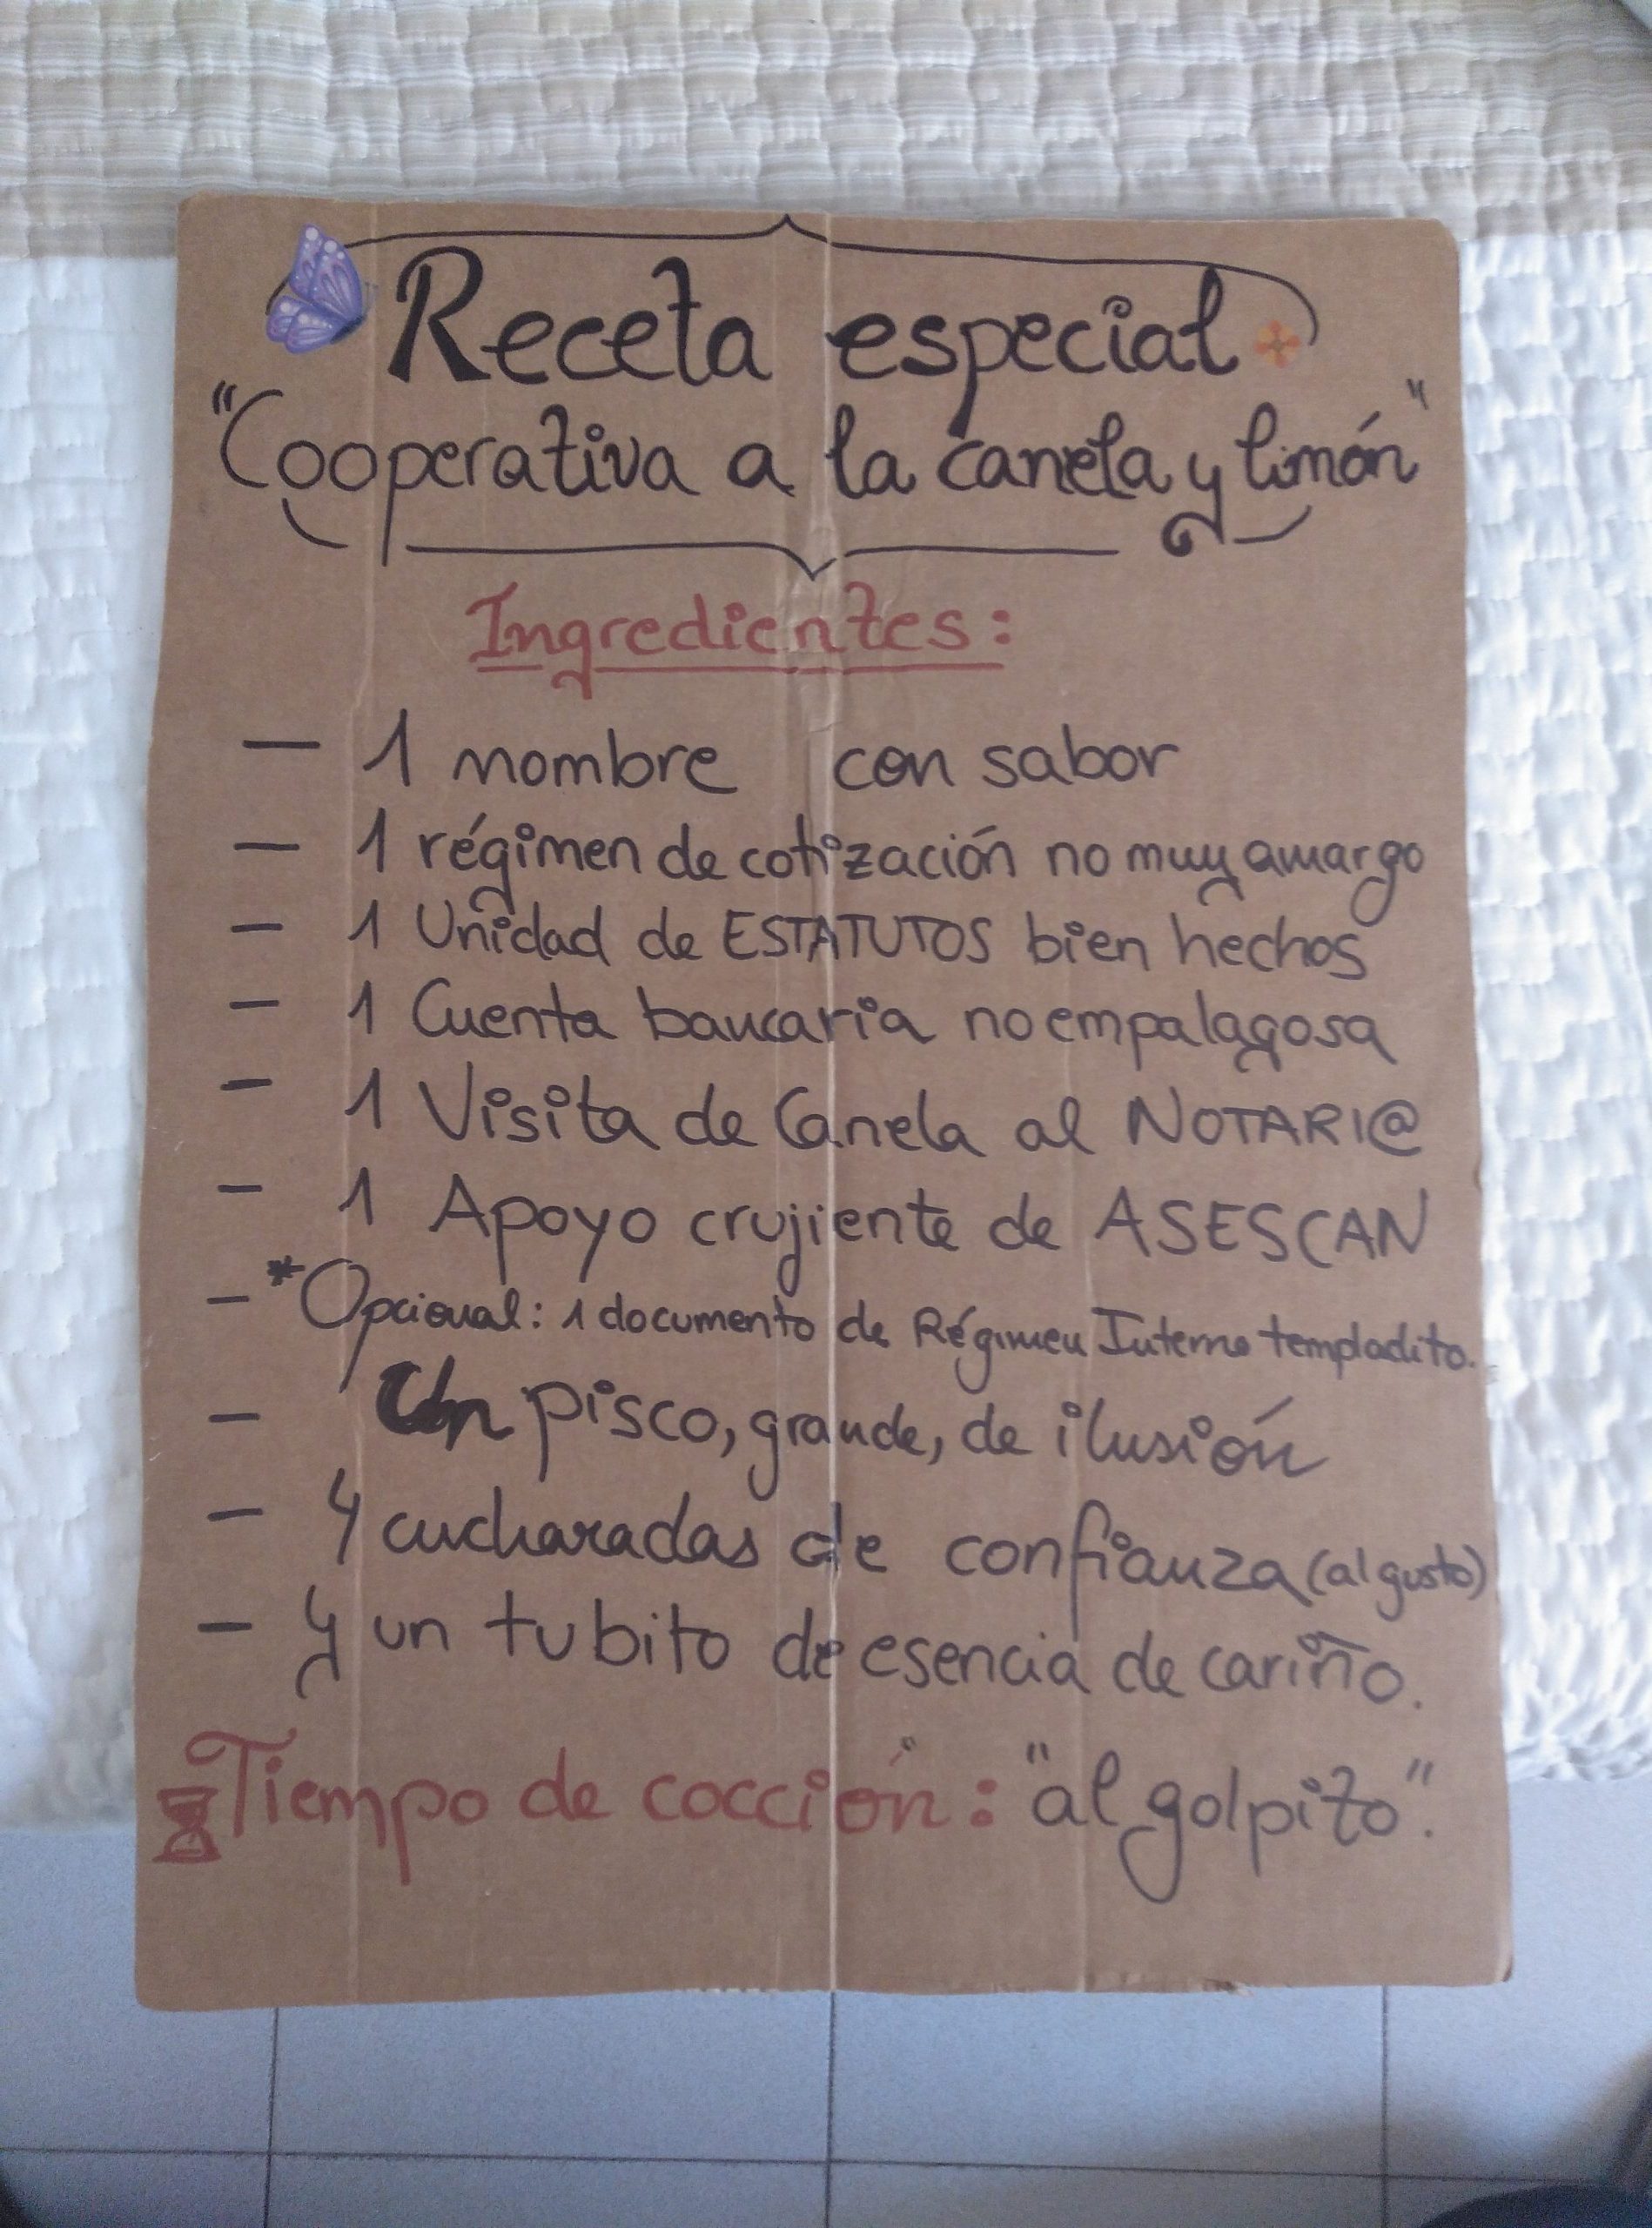 Receta especial
"Cooperativa a la canela y limón"
Ingredientes:
— 1 nombre con sabor
— 1 régimen de cotización no muy amargo
— 1 Unidad de ESTATUTOS bien hechos
— 1 Cuenta bancaria no empalagosa
— 1 Visita de Canela al NOTARI@
— 1 Apoyo crujiente de ASESCAN
— *Opcional: 1 documento de Régimen Interno templadito.
— Un pisco, grande, de ilusión
— 4 cucharadas de confianza (al gusto)
— y un tubito de esencia de cariño.
Tiempo de cocción: "al golpito".